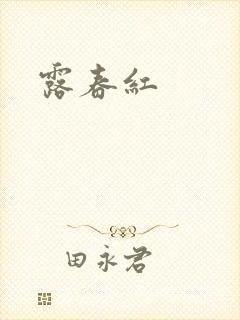 露春紅
田永君